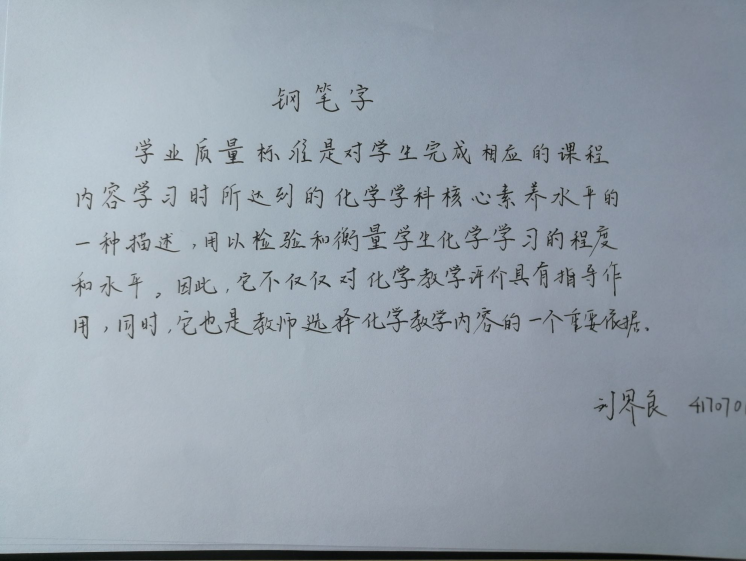 钢笔字
学业质量标准是对学生完成相应的课程
内容学习时所达到的化学学科核心素养水平的
一种描述，用以检验和衡量学生化学学习的程度
和水平。因此，它不仅仅对化学教学评价具有指导作
用，同时，它也是教师选择化学教学内容的一个重要依据。
刘界良 417070